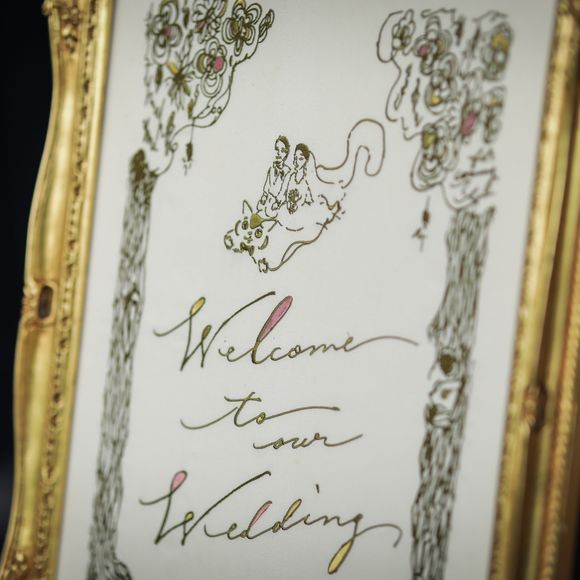 Welcome
to
our
Wedding